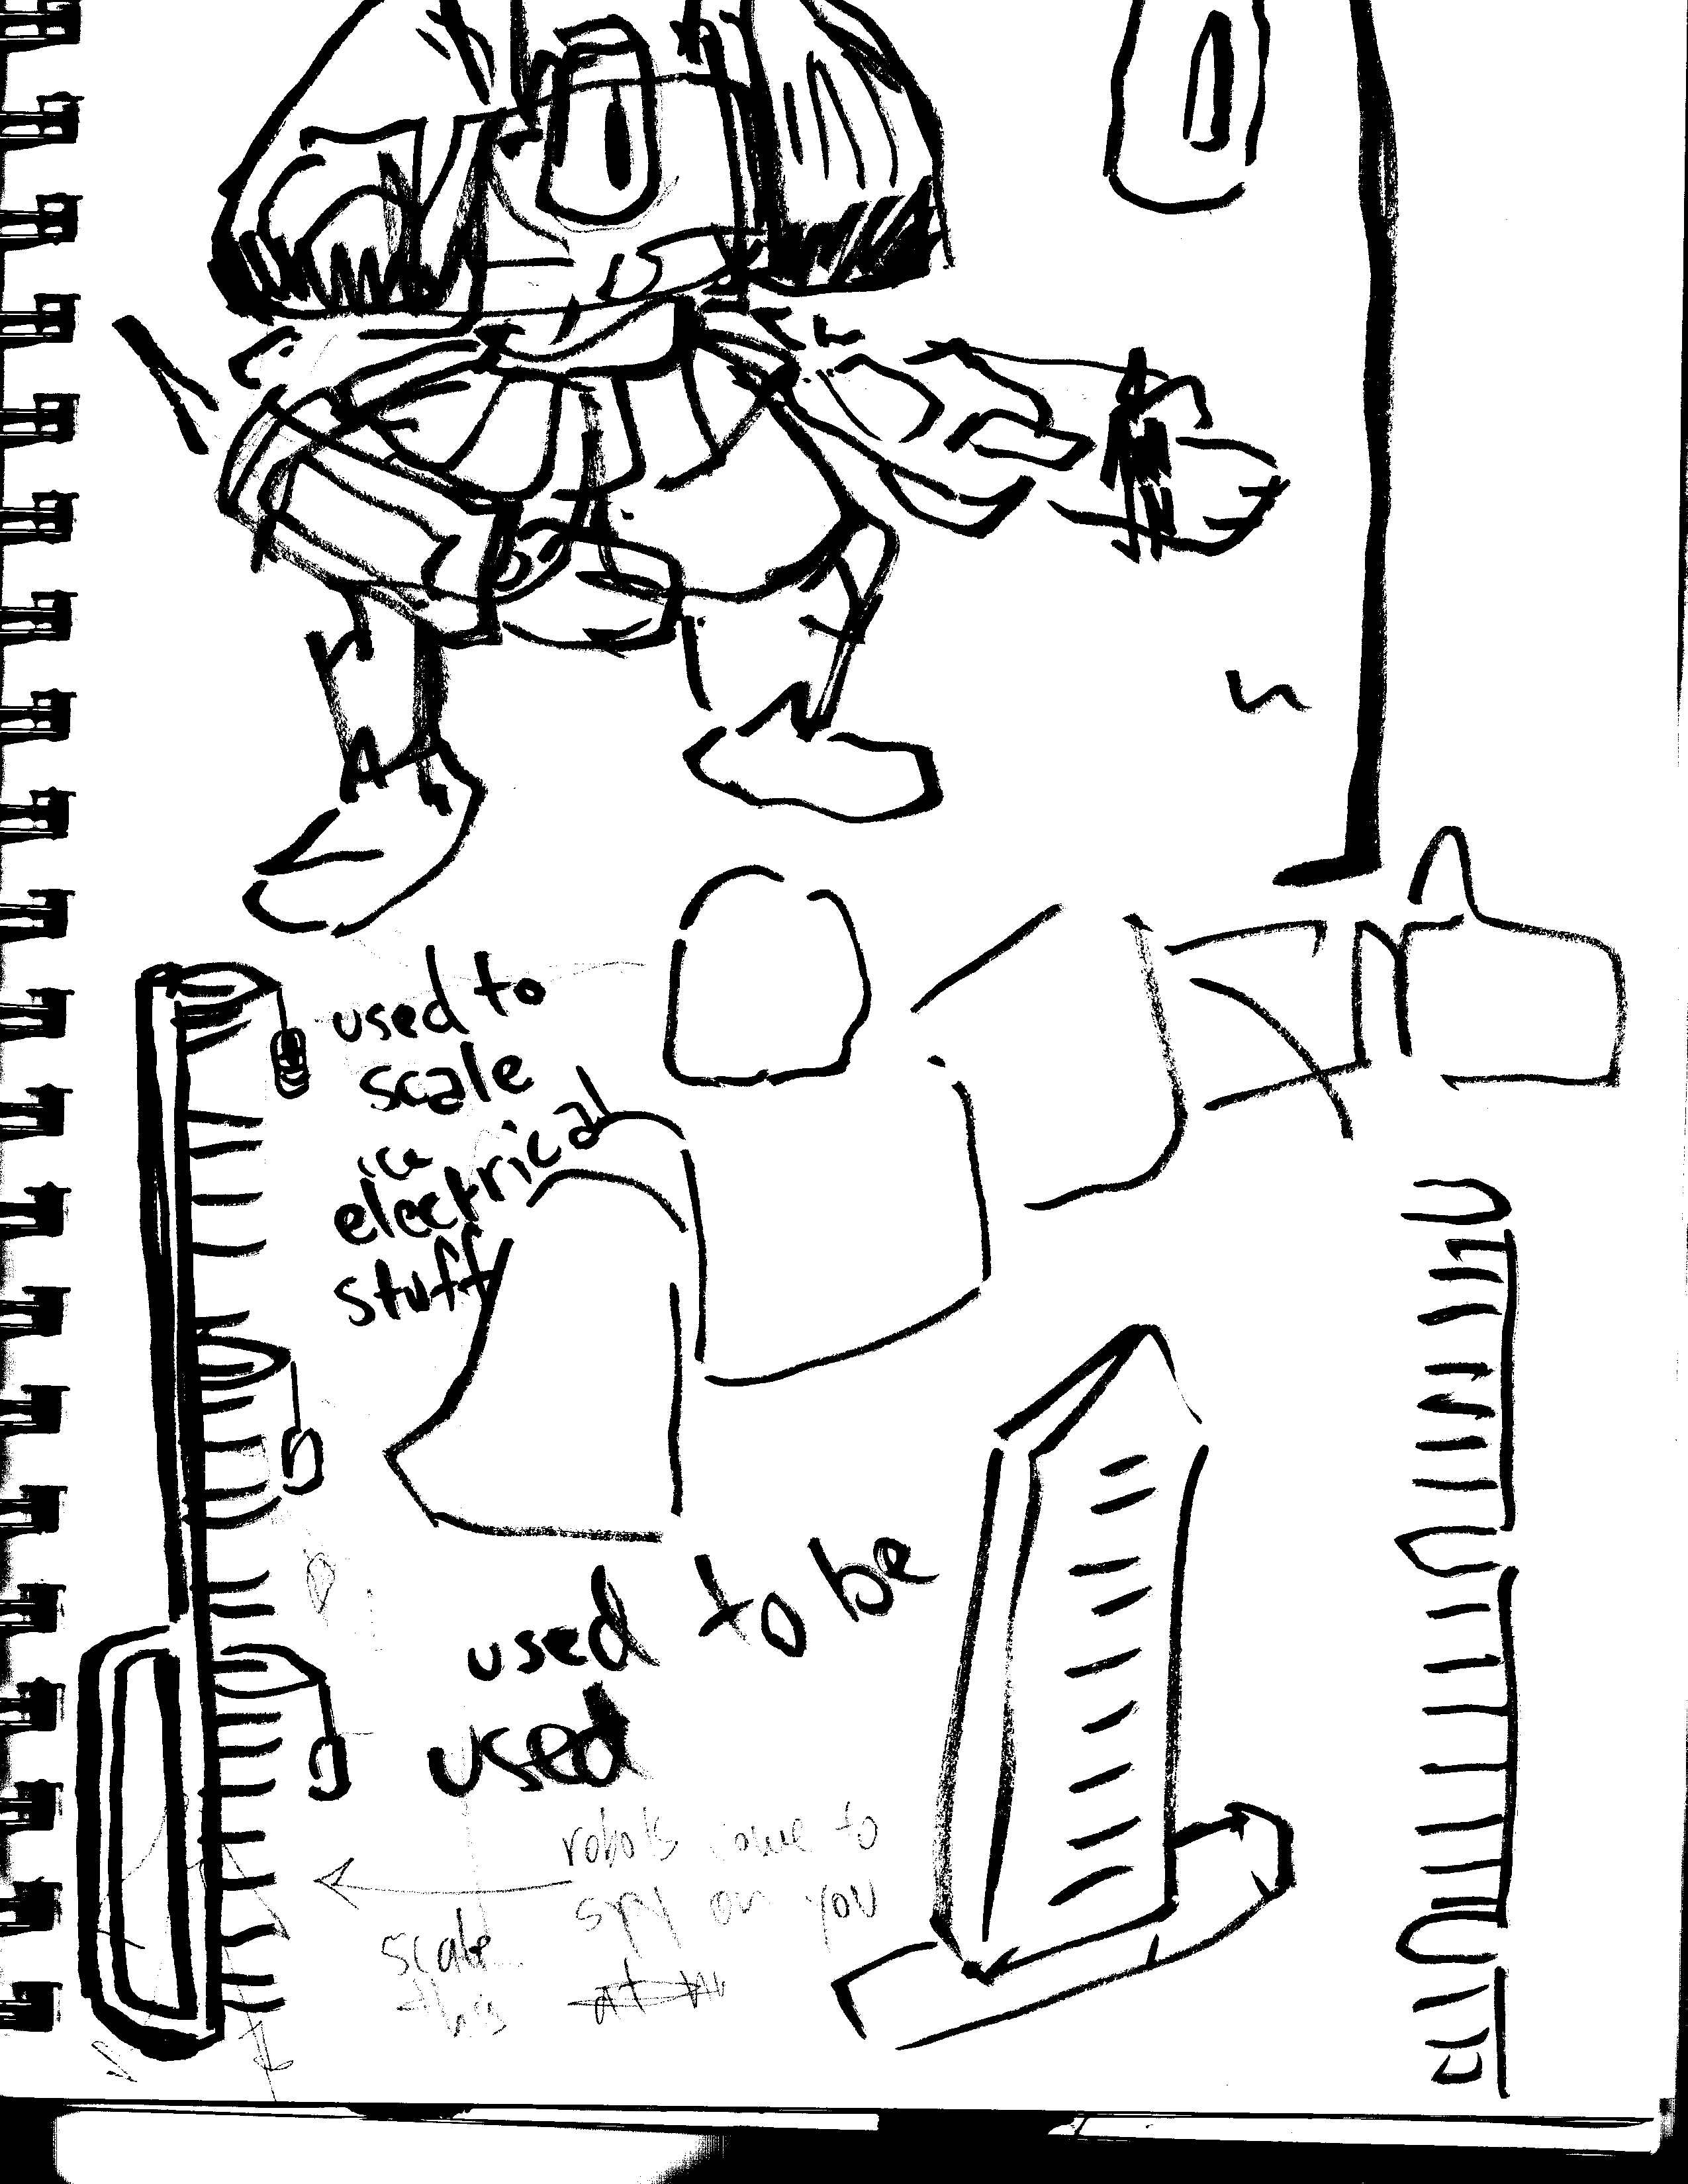 used to
scale
ice
electrical
stuff
used to be
used
robots came to
spy on you
scale
this
at